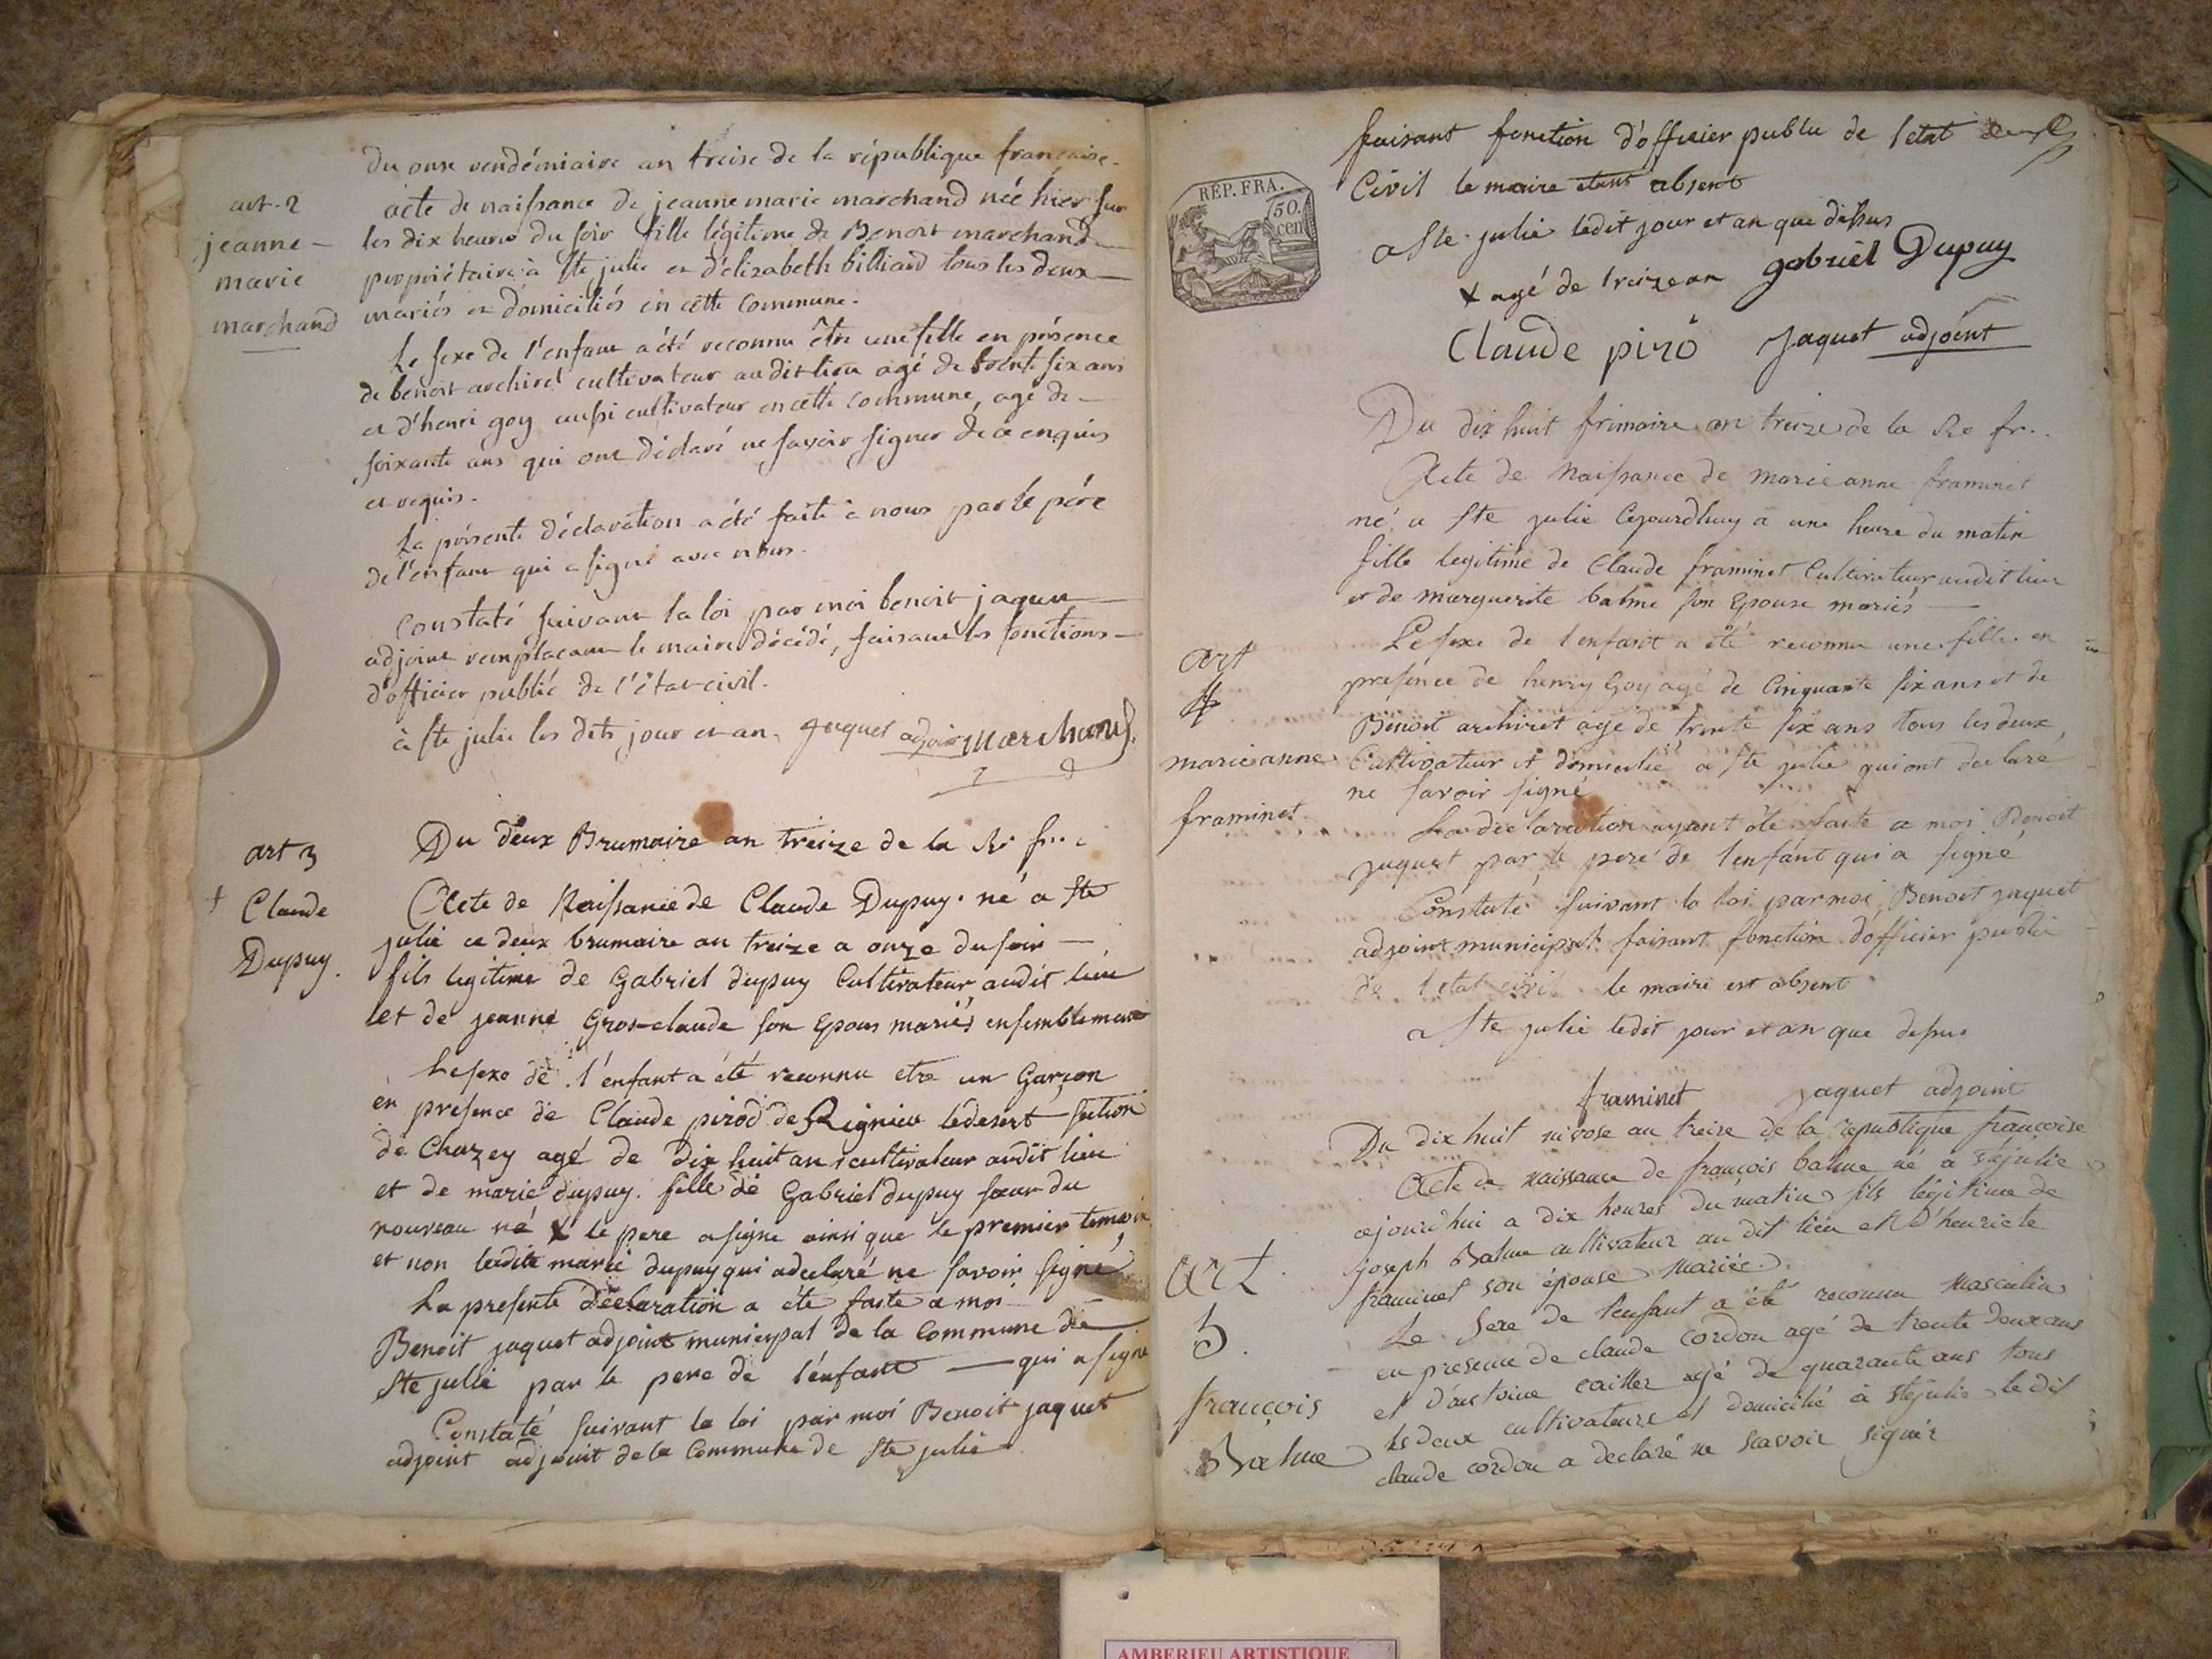 du onse vendémiaire an treise de la république francaise.
art. 2
jeanne-
marie
marchand
acte de naissance de jeanne marie marchand née hier sur
les dix heures du soir fille légitime de Benoit marchand
propriétaire à Ste julie et d'élizabeth billiard tous les deux
mariés et domiciliés en cette commune.
Le sexe de l'enfant a été reconnu être une fille en présence
de benoit archiret cultivateur au dit lieu agé de trente six ans
et d'henri goy aussi cultivateur en cette commune, agé de
soixante ans qui ont déclaré ne savoir signer de ce enquis
et requis.
La présente déclaration a été faite à nous par le père
de l'enfant qui a signé avec nous.
Constaté suivant la loi par moi benoit jaquet
adjoint remplacant le maire décédé, faisant les fonctions
d'officier public de l'état-civil.
à Ste julie les dits jour et an. Jaquet adjoint Marchand
art 3
Claude
Dupuy.
Du deux Brumaire an treize de la Re fr..
Acte de Naissance de Claude Dupuy. né a Ste
julie ce deux brumaire an treize a onze du soir
fils legitime de Gabriel dupuy Cultivateur audit lieu
et de jeanne Gros-claude son Epous mariés ensemblement
Le sexe de l'enfant a été reconnu etre un Garçon
en presence de Claude pirod de Rignieu le desert section
de Chazey agé de Dix huit an cultivateur audit lieu
et de marie dupuy. fille de Gabriel dupuy sœur du
nouveau né x le pere a signe ainsi que le premier temoin
et non ladite marie dupuy qui a declaré ne savoir signé
La presente declaration a éte faite a moi
Benoit jaquet adjoint municipal de la Commune de
Ste julie par le pere de l'enfant qui a signé
Constaté suivant la loi par moi Benoit jaquet
adjoint adjoint de la Commune de Ste julie
REP. FRA.
50.
cen
faisant fonction d'officier public de l'etat
Civil le maire etant absent
a Ste. julie ledit jour et an que dessus
x agé de treize an gabriel Dupuy
Claude piro Jaquet adjoint
Du dix huit frimaire an treize de la Re fr..
Acte de Naissance de marie anne framinet
né a Ste julie Cejourdhuy a une heure du matin
fille legitime de Claude framinet Cultivateur audit lieu
et de marguerite balme son Epouse mariés
art
4
marie anne
framinet
Le sexe de l'enfant a été reconnu une fille en
presence de henry Goy agé de Cinquante six ans et de
Benoit archiret agé de trente six ans tous les deux
Cultivateur et domicilié a Ste julie qui ont declaré
ne savoir signé
La declaration ayant été faite a moi Benoit
jaquet par le pere de l'enfant qui a signé
Constaté suivant la loi par moi Benoit jaquet
adjoint municipal faisant fonction d'officier public
de l'etat civil le maire est absent
a Ste julie ledit jour et an que dessus
framinet jaquet adjoint
Du dix huit nivose an treize de la republique francoise
Acte de naissance de françois balme né a Ste julie
cejourd'hui a dix heures du matin fils légitime de
joseph Balme cultivateur au dit lieu et d'henriete
framinet son épouse mariés.
art.
5.
françois
Balme
Le Sexe de l'enfant a été reconnu masculin
en presence de claude cordon agé de trente deux ans
et d'antoine caillez agé de quarante ans tous
les deux cultivateurs et domicilié à Ste julie le dit
claude cordon a declaré ne scavoir signér
AMBERIEU ARTISTIQUE